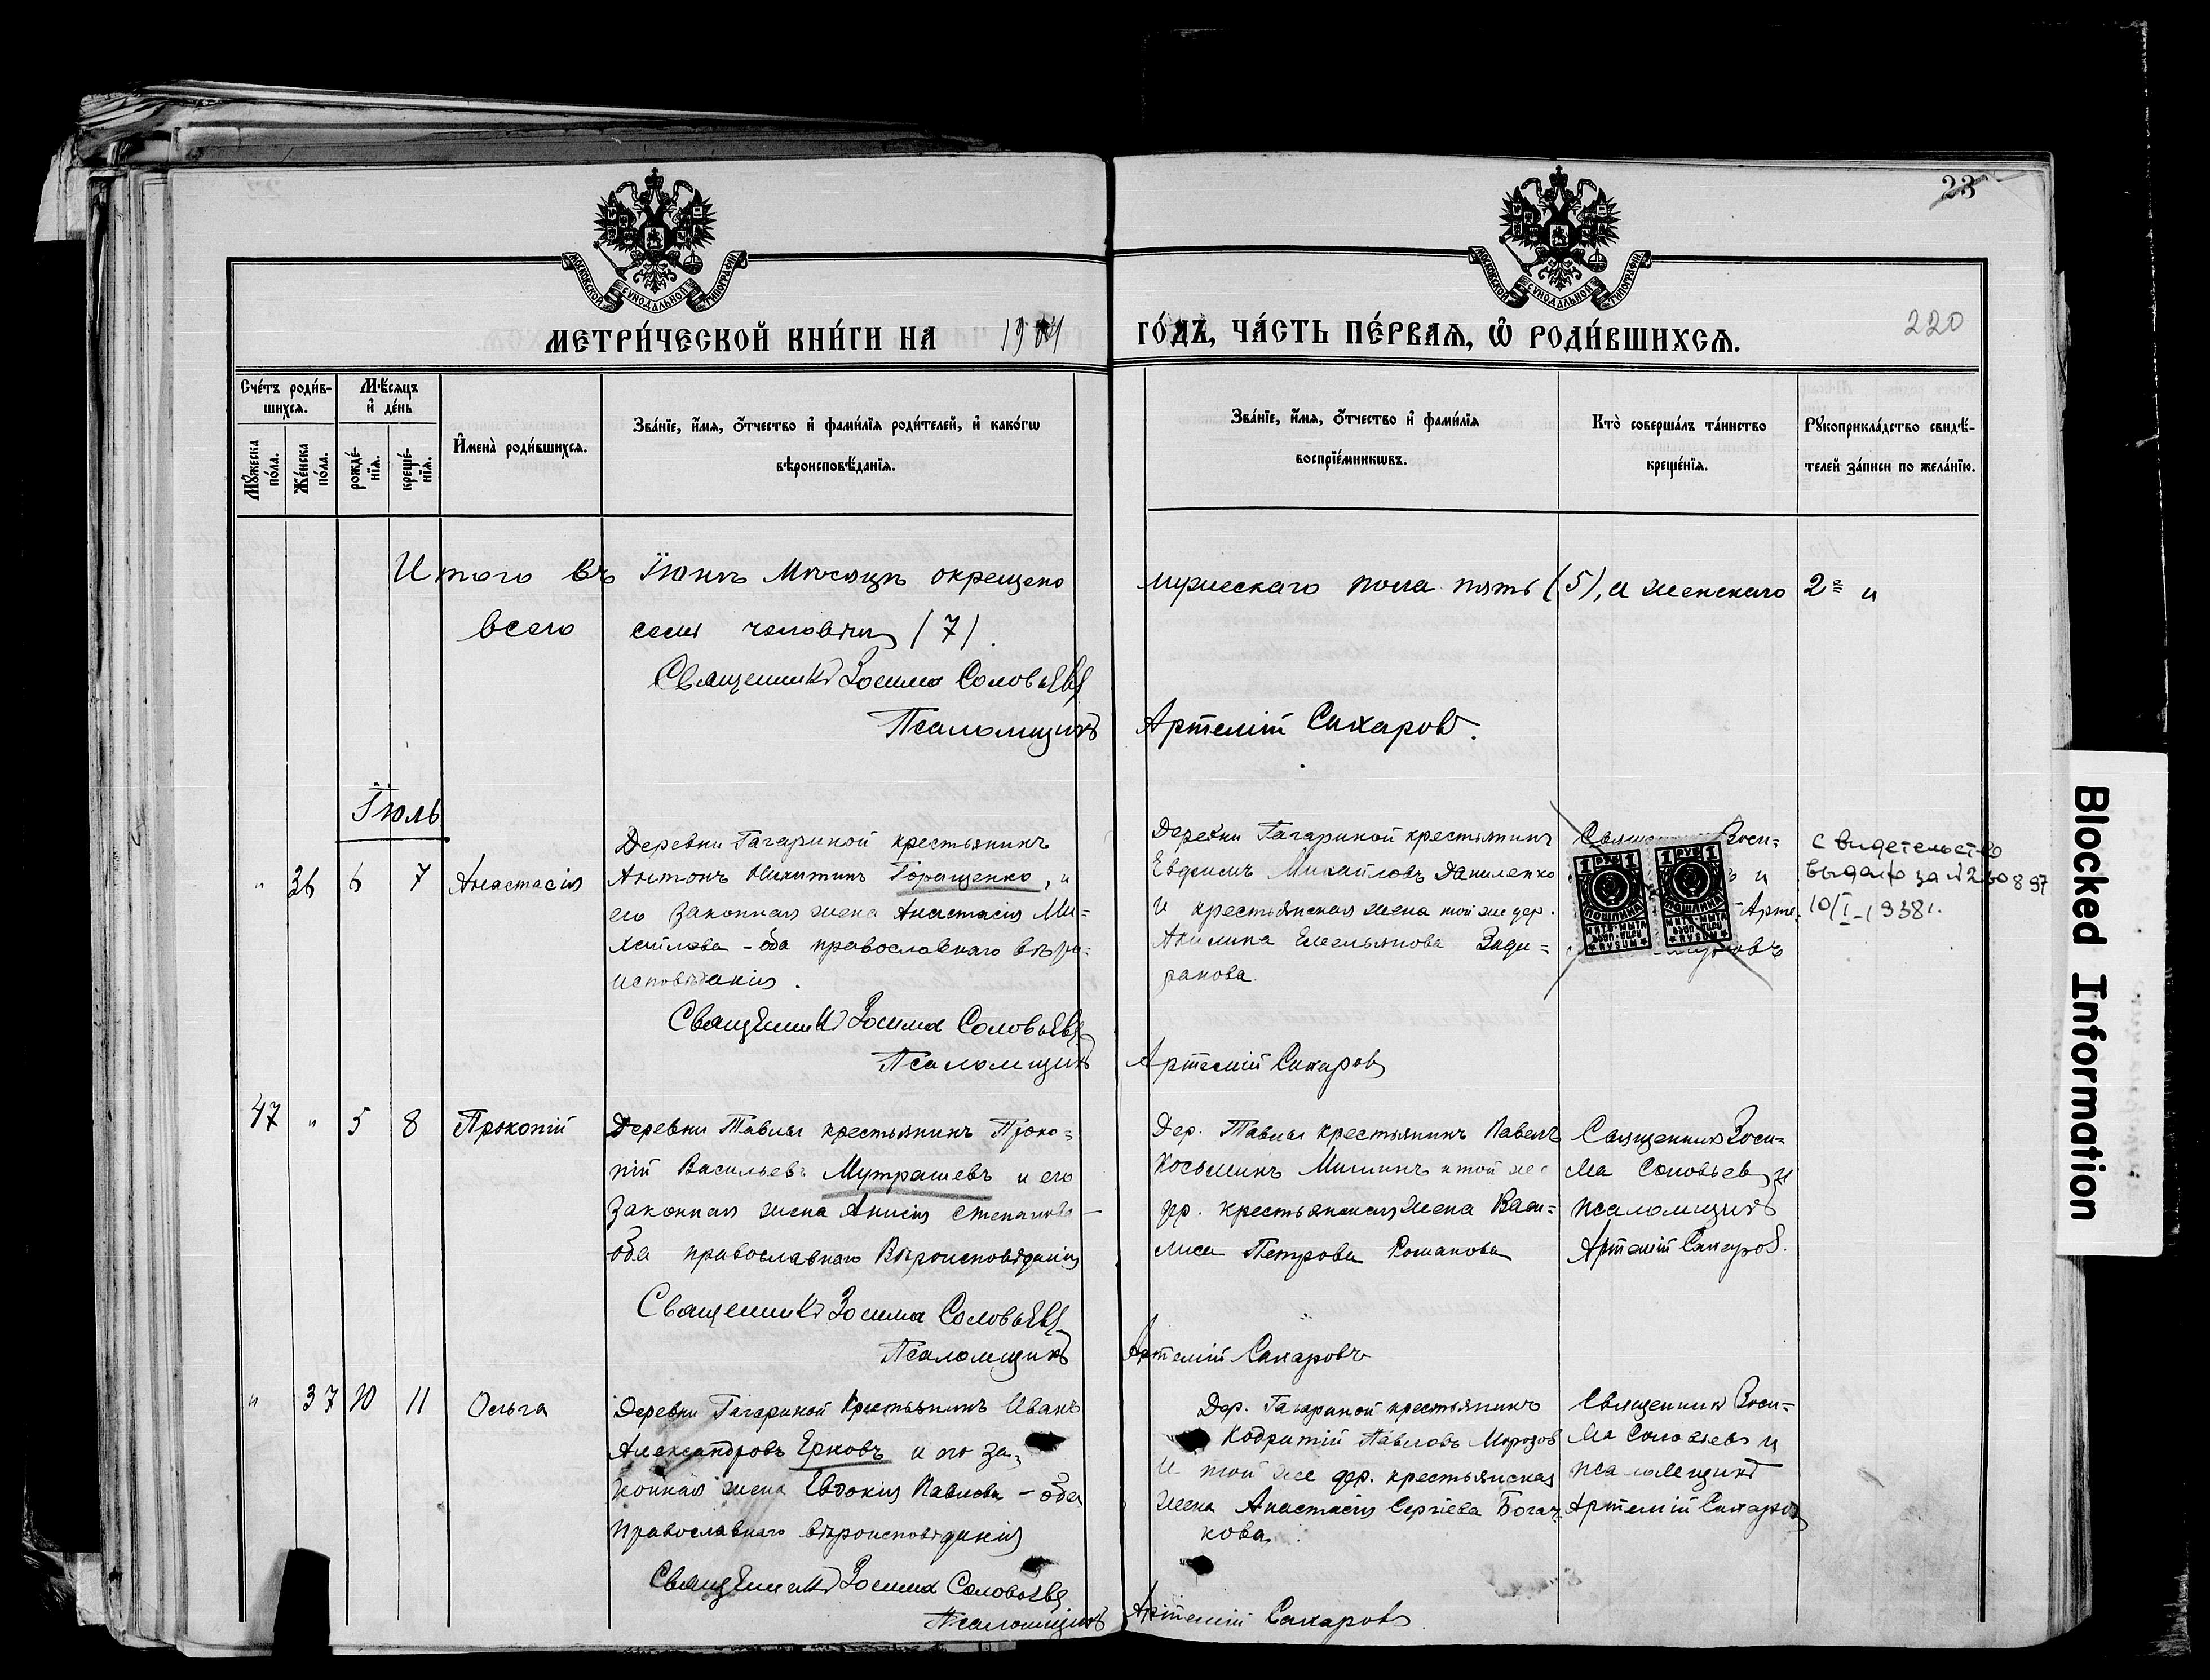 23
МОСКОВСКОЙ СѴНОДАЛЬНОЙ ТИПОГРАФІИ
МОСКОВСКОЙ СѴНОДАЛЬНОЙ ТИПОГРАФІИ
МЕТРИ́ЧЕСКОЙ КНИ́ГИ НА 19
ГО́ДЪ, ЧА́СТЬ ПЕ́РВАѦ, Ѡ҆ РОДИ́ВШИХСѦ.
220
Сче́тъ роди́в-
шихсѧ.
Мꙋ́жеска по́ла.
Же́нска по́ла.
Мѣ́сѧцъ
и҆ де́нь
рожде́-
нїѧ.
креще́-
нїѧ.
И҆мена̀ роди́вшихсѧ.
Зва́нїе, и҆́мѧ, ѻ҆́тчество и҆ фами́лїѧ роди́телей, и҆ како́гѡ
вѣроисповѣ́данїѧ.
Зва́нїе, и҆́мѧ, ѻ҆́тчество и҆ фами́лїѧ
воспрїе́мникѡвъ.
Кто̀ соверша́лъ та́инство
креще́нїѧ.
Рꙋкоприкла́дство свидѣ́-
телей за́писи по жела́нїю.
Итого въ Іюнѣ Мѣсяцѣ окрещено мужескаго пола пять (5), а женскаго 2ое и
всего семь человѣкъ (7).
Священникъ Зосима Соловьевъ
Псаломщикъ Артемій Сахаровъ.
Іюль
" 36 6 7 Анастасія
Деревни Гагариной крестьянинъ
Антонъ Никитинъ Горащенко, и
его законная жена Анастасія Ми=
хайлова - оба православнаго вѣро=
исповѣданія.
Деревни Гагариной крестьянинъ
Евфимъ Михайловъ Даниленко
и крестьянская жена той же дер.
Акилина Емельянова
ранова.
Зоси=
и
Арте
1 РУБ 1
ПОШЛИНА
1 РУБ 1
ПОШЛИНА
свидетельство
выдано за №230897
10/I-1938г.
Священникъ Зосима Соловьевъ
Псаломщикъ Артемій Сахаровъ
47 " 5 8 Прокопій
Деревни Тавлы крестьянинъ Проко=
пій Васильевъ Мутрашевъ и его
законная жена Анисія Степанова -
оба православнаго Вѣроисповѣданія
Дер. Тавлы крестьянинъ Павелъ
Косьминъ Мишинъ и той же
дер. крестьянская жена Васи=
лиса Петрова Романова
Священникъ Зоси=
ма Соловьевъ и
псаломщикъ
Артемій Сахаровъ.
Священникъ Зосима Соловьевъ
Псаломщикъ Артемій Сахаровъ
" 37 10 11 Ольга
Деревни Гагариной Крестьянинъ Иванъ
Александровъ Ерковъ и его за=
конная жена Евдокія Павлова - оба
Православнаго вѣроисповѣданія
Дер. Гагариной крестьянинъ
Кодратій Павловъ Морозов
и той же дер. крестьянская
жена Анастасія Сергіева Богач=
кова
Священник Зоси=
ма Соловьевъ и
псаломщикъ
Артемій Сахаровъ
Священникъ Зосима Соловьевъ
Псаломщикъ Артемій Сахаровъ
Blocked Information